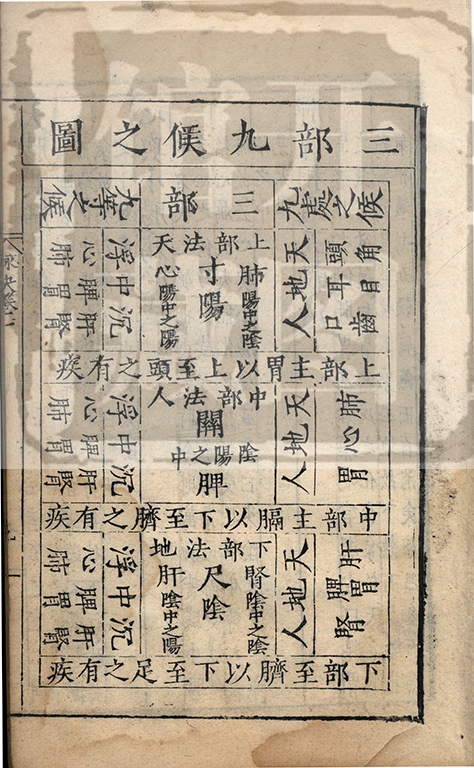 三部九候之圖
九處之候
三部
九等之候
頭角
耳目
口齒
天地人
上部法天
肺陽中之陰
寸陽
心陽中之陽
浮中沉
心脾肝
肺胃腎
上部主胃以上至頭之有疾
肺
心
胃
天地人
中部法人
關
陰陽之中
脾
浮中沉
心脾肝
肺胃腎
中部主膈以下至臍之有疾
肝
脾胃
腎
天地人
下部法地
腎陰中之陰
尺陰
肝陰中之陽
浮中沉
心脾肝
肺胃腎
下部至臍以下至足之有疾